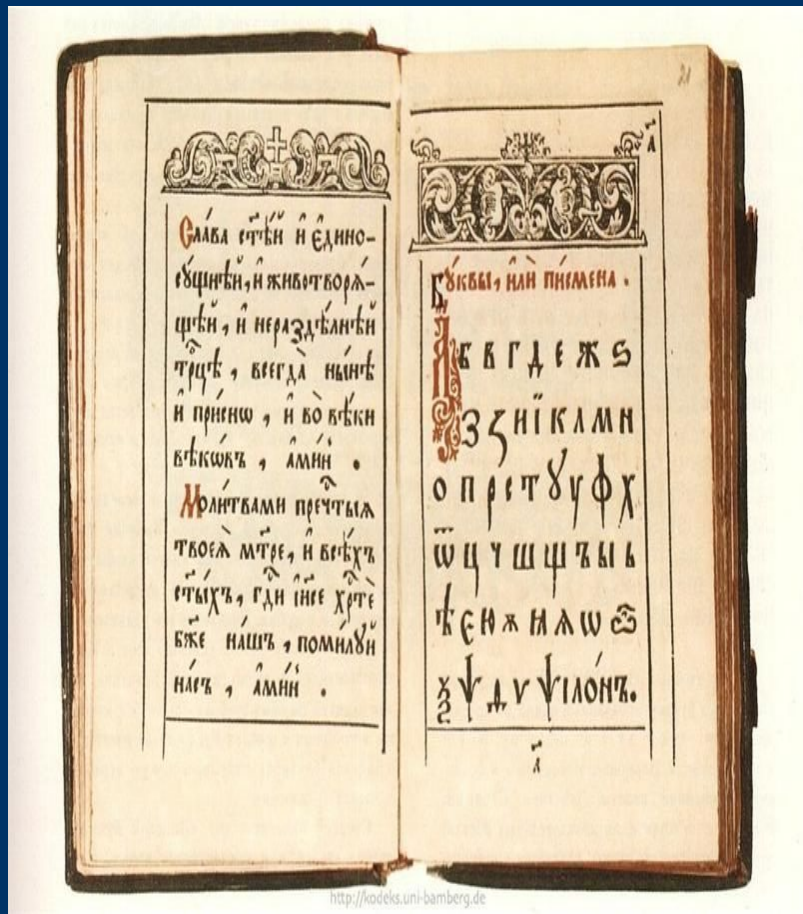 Сла́ва ст҃ѣ́й и҆ є҆дино-
сꙋ́щнѣй, и҆ животворѧ́-
щѣй, и҆ нераздѣ́лнѣй
трⷪ҇цѣ, всегда̀ нн҃ѣ
и҆ при́снѡ, и҆ во̀ вѣ́ки
вѣкѡ́въ, а҆ми́нь.
Моли́твами пречⷭ҇тыѧ
твоеѧ̀ мт҃ре, и҆ всѣ́хъ
ст҃ы́хъ, гдⷭ҇и і҆и҃се хрⷭ҇тѐ
бж҃е на́шъ, поми́лꙋй
на́съ, а҆ми́нь.
21
а҃
Бꙋ́квы, и҆лѝ писмена̀.
А Б В Г Д Е Ж Ѕ
З Ꙁ И Ї К Л М Н
О П Р С Т Ꙋ У Ф Х
Ѿ Ц Ч Ш Щ Ъ Ы Ь
Ѣ Є Ю Ѫ Ꙗ Ѧ Ѡ Ѽ
Ѯ Ѱ Д Ѵ Ѱїло́нъ.
а҃
http://kodeks.uni-bamberg.de